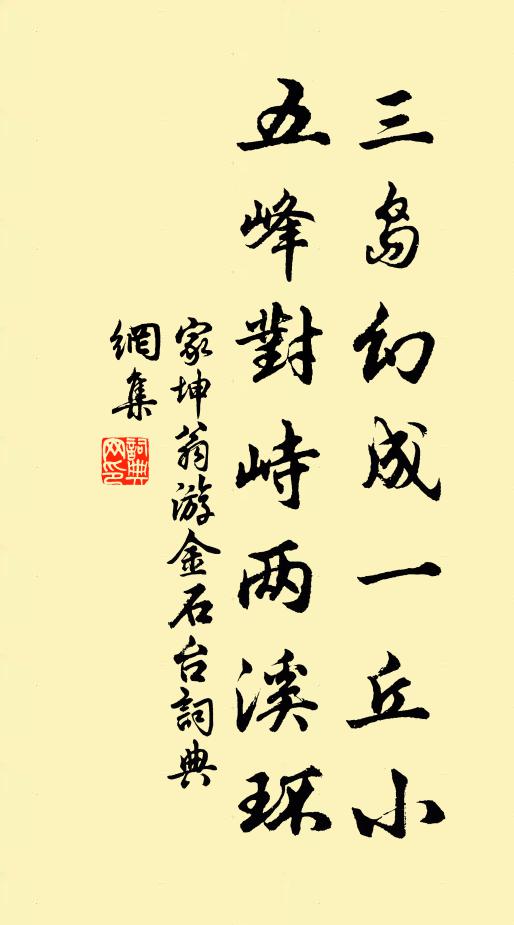 三島幻成一丘小
五峰對峙两溪环
家坤翁游金石台詞典
網集
詞典
网印